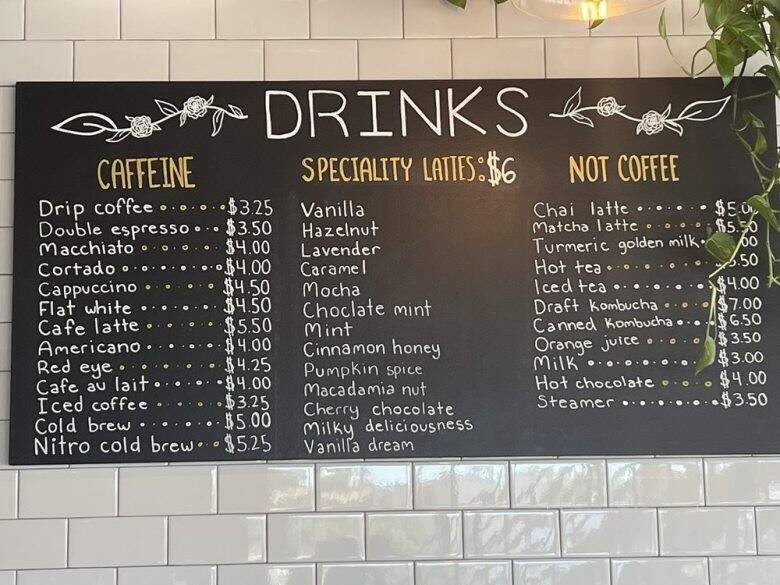 DRINKS
CAFFEINE
Drip coffee $3.25
Double espresso $3.50
Macchiato $4.00
Cortado $4.00
Cappuccino $4.50
Flat white $4.50
Cafe latte $5.50
Americano $4.00
Red eye $4.25
Cafe au lait $4.00
Iced coffee $3.25
Cold brew $5.00
Nitro cold brew $5.25
SPECIALITY LATTES: $6
Vanilla
Hazelnut
Lavender
Caramel
Mocha
Choclate mint
Mint
Cinnamon honey
Pumpkin spice
Macadamia nut
Cherry chocolate
Milky deliciousness
Vanilla dream
NOT COFFEE
Chai latte
Matcha latte $5.50
Turmeric golden milk
Hot tea
Iced tea $4.00
Draft Kombucha $7.00
Canned Kombucha $6.50
Orange juice $3.50
Milk $3.00
Hot chocolate $4.00
Steamer $3.50